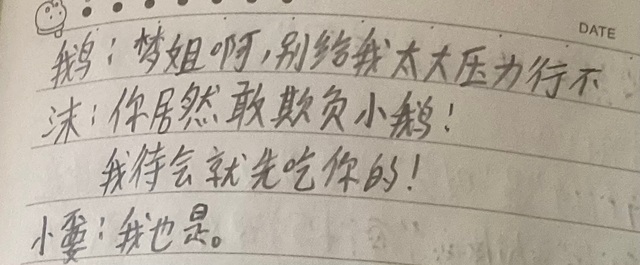 DATE
鹅：梦姐啊，别给我太大压力行不
沫：你居然敢欺负小鹅！
我待会就先吃你的！
小霎：我也是。